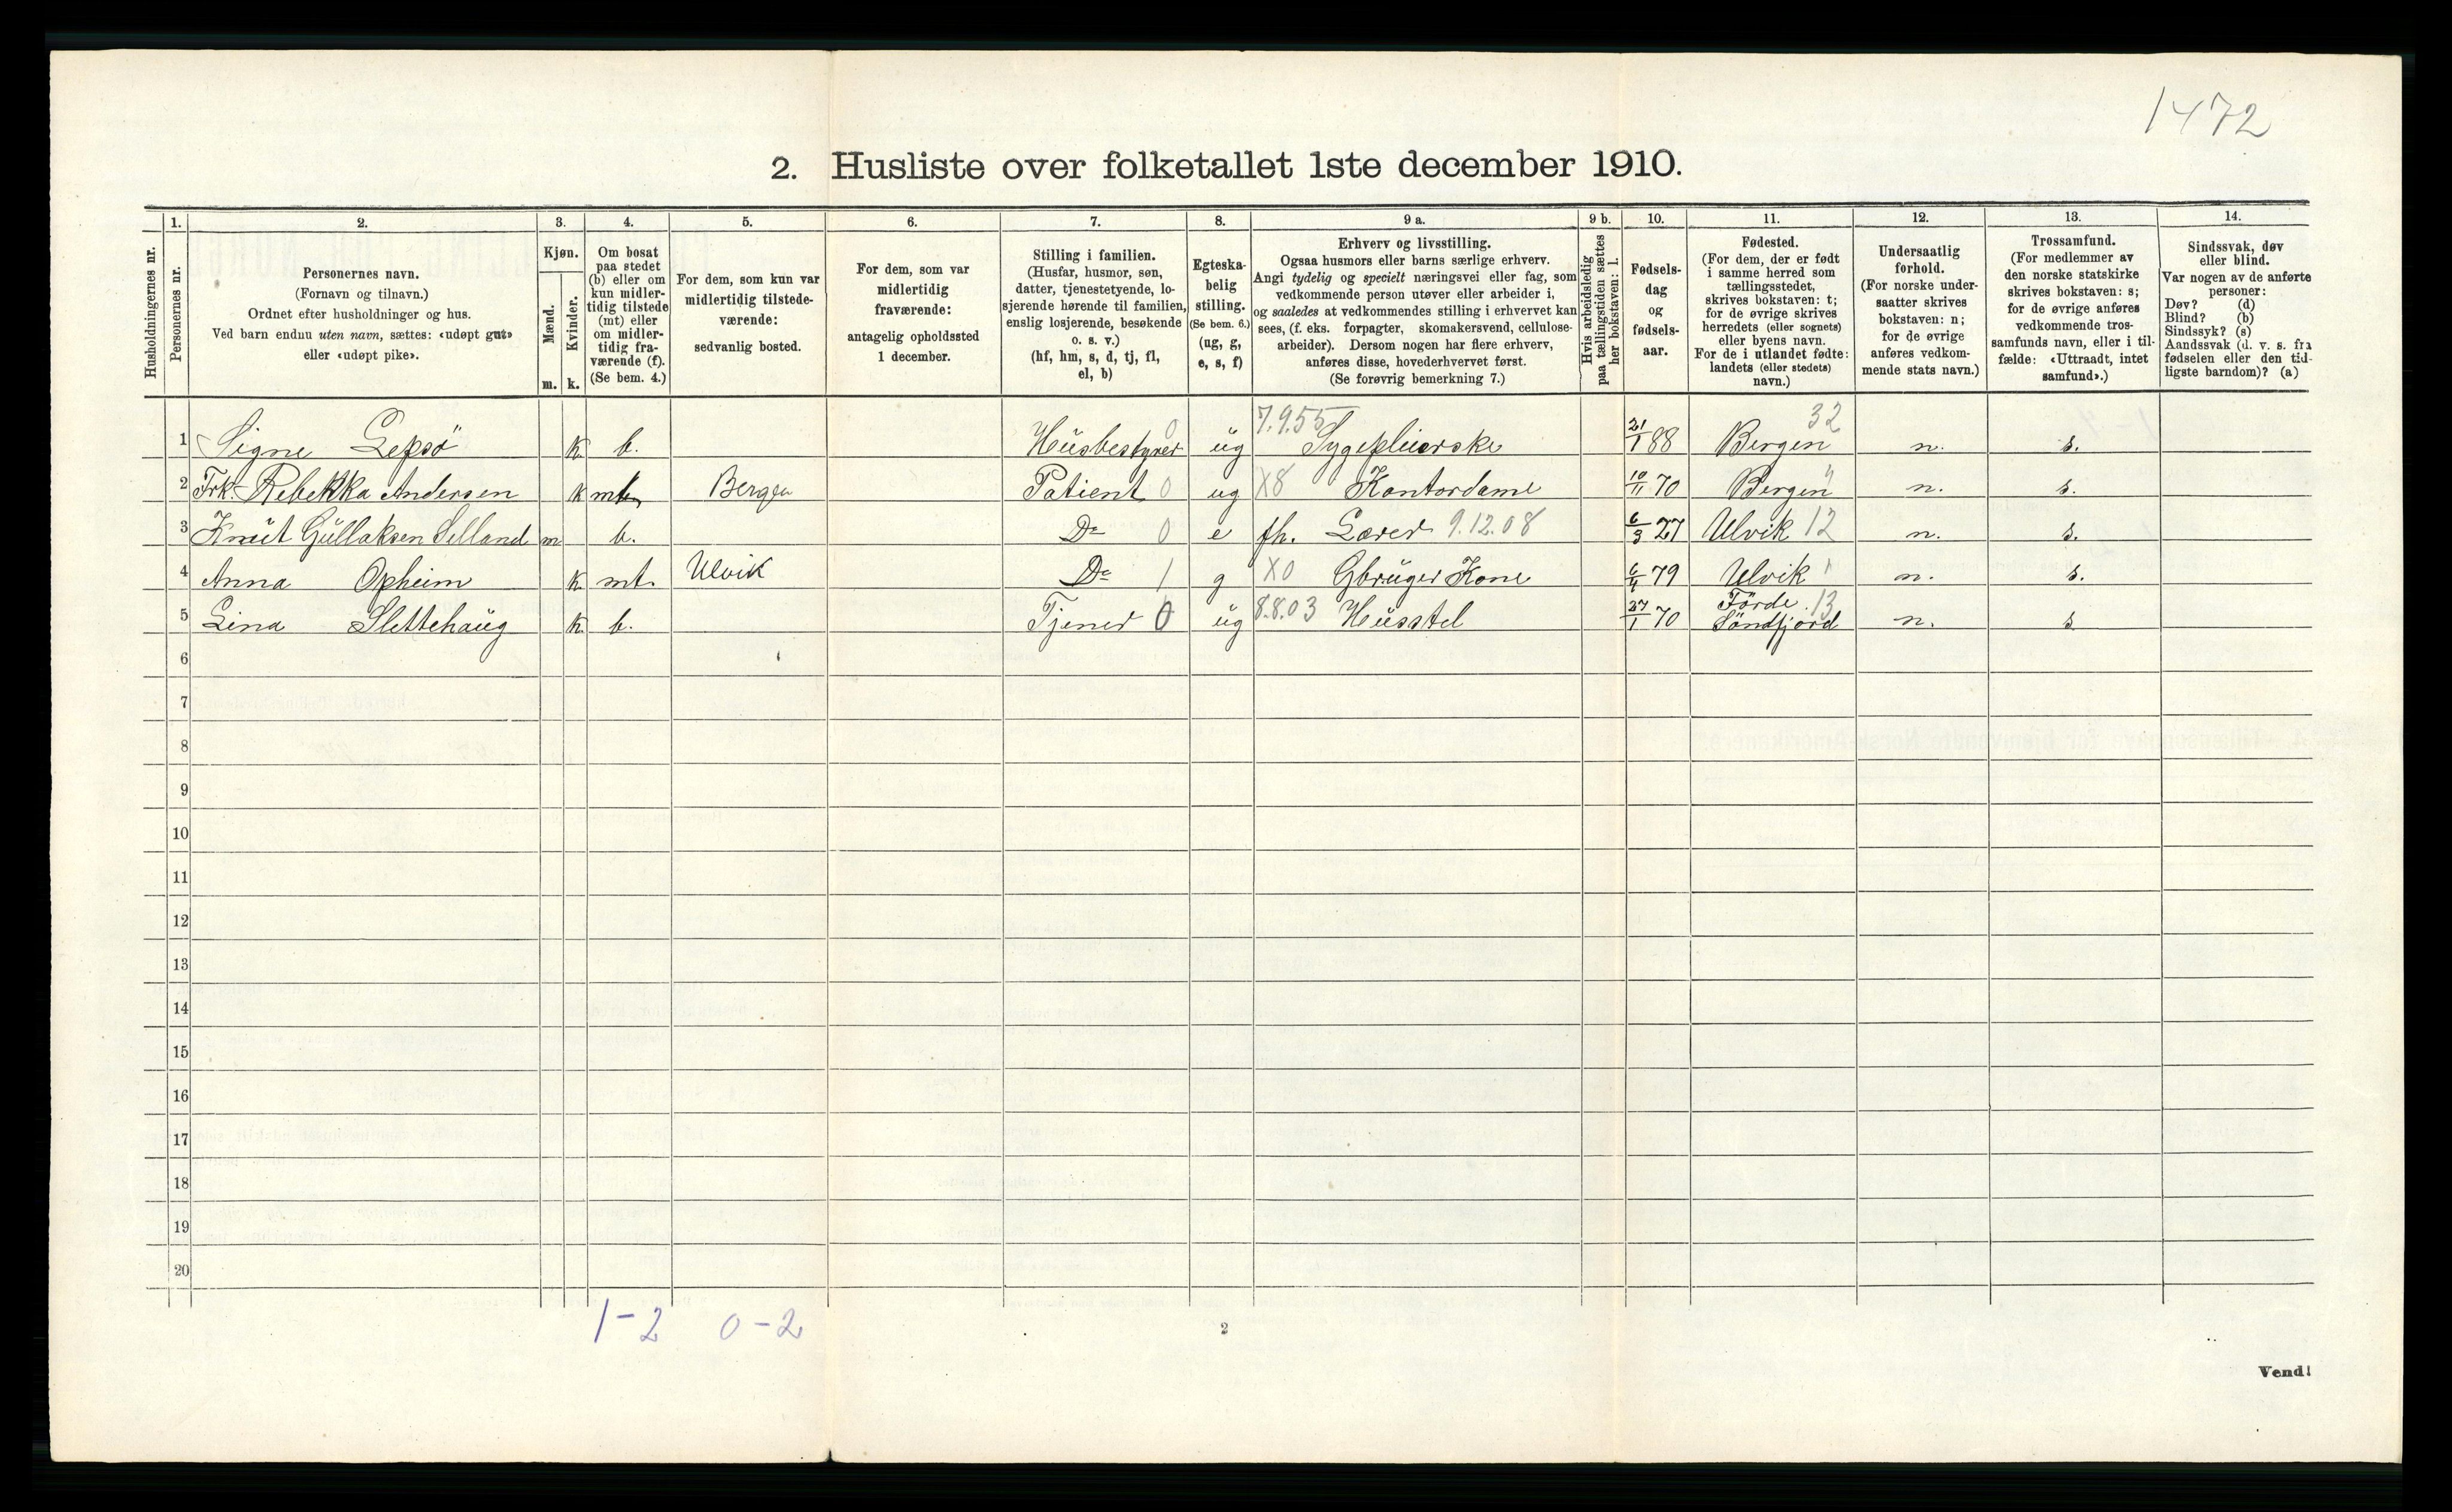 1472
2. Husliste over folketallet 1ste december 1910.
1. 2. 3. 4. 5. 6. 7. 8. 9 a. 9 b. 10. 11. 12. 13. 14.
Husholdningernes nr.
Personernes nr.
Personernes navn.
(Fornavn og tilnavn.)
Ordnet efter husholdninger og hus.
Ved barn endnu uten navn, sættes: «udøpt gut»
eller «udøpt pike».
Kjøn.
Mænd.
Kvinder.
m. k.
Om bosat
paa stedet
(b) eller om
kun midler-
tidig tilstede
(mt) eller
om midler-
tidig fra-
værende (f).
(Se bem. 4.)
For dem, som kun var
midlertidig tilstede-
værende:
sedvanlig bosted.
For dem, som var
midlertidig
fraværende:
antagelig opholdssted
1 december.
Stilling i familien.
(Husfar, husmor, søn,
datter, tjenestetyende, lo-
sjerende hørende til familien,
enslig losjerende, besøkende
o. s. v.)
(hf, hm, s, d, tj, fl,
el, b)
Egteska-
belig
stilling.
(Se bem. 6.)
(ug, g,
e, s, f)
Erhverv og livsstilling.
Ogsaa husmors eller barns særlige erhverv.
Angi tydelig og specielt næringsvei eller fag, som
vedkommende person utøver eller arbeider i,
og saaledes at vedkommendes stilling i erhvervet kan
sees, (f. eks. forpagter, skomakersvend, cellulose-
arbeider). Dersom nogen har flere erhverv,
anføres disse, hovederhvervet først.
(Se forøvrig bemerkning 7.)
Hvis arbeidsledig
paa tællingstiden sættes
her bokstaven: l.
Fødsels-
dag
og
fødsels-
aar.
Fødested.
(For dem, der er født
i samme herred som
tællingsstedet,
skrives bokstaven: t;
for de øvrige skrives
herredets (eller sognets)
eller byens navn.
For de i utlandet fødte:
landets (eller stedets)
navn.)
Undersaatlig
forhold.
(For norske under-
saatter skrives
bokstaven: n;
for de øvrige
anføres vedkom-
mende stats navn.)
Trossamfund.
(For medlemmer av
den norske statskirke
skrives bokstaven: s;
for de øvrige anføres
vedkommende tros-
samfunds navn, eller i til-
fælde: «Uttraadt, intet
samfund».)
Sindssvak, døv
eller blind.
Var nogen av de anførte
personer:
Døv? (d)
Blind? (b)
Sindssyk? (s)
Aandssvak (d. v. s. fra
fødselen eller den tid-
ligste barndom)? (a)
1 Signe Lepsö k b. Husbestyrer 0 ug 7.9.55 Sygepleierske 21/1 88 Bergen 32 n. s.
2 Frk. Rebekka Andersen k mt Bergen Patient 0 ug X8 Kontordame 10/11 70 Bergen " n. s.
3 Knut Gullaksen Selland m b. Do 0 e fh. Lærer 9.12.08 6/3 27 Ulvik 12 n. s.
4 Anna Opheim k mt. Ulvik Do 1 g X0 Gbruger Kone 6/4 79 Ulvik " n. s.
5 Lina Slettehaug k b. Tjener 0 ug 8.8.03 Husstel 27/1 70 Förde 13 Söndfjord n. s
6
7
8
9
10
11
12
13
14
15
16
17
18
19
20
1-2 0-2
2
Vend!